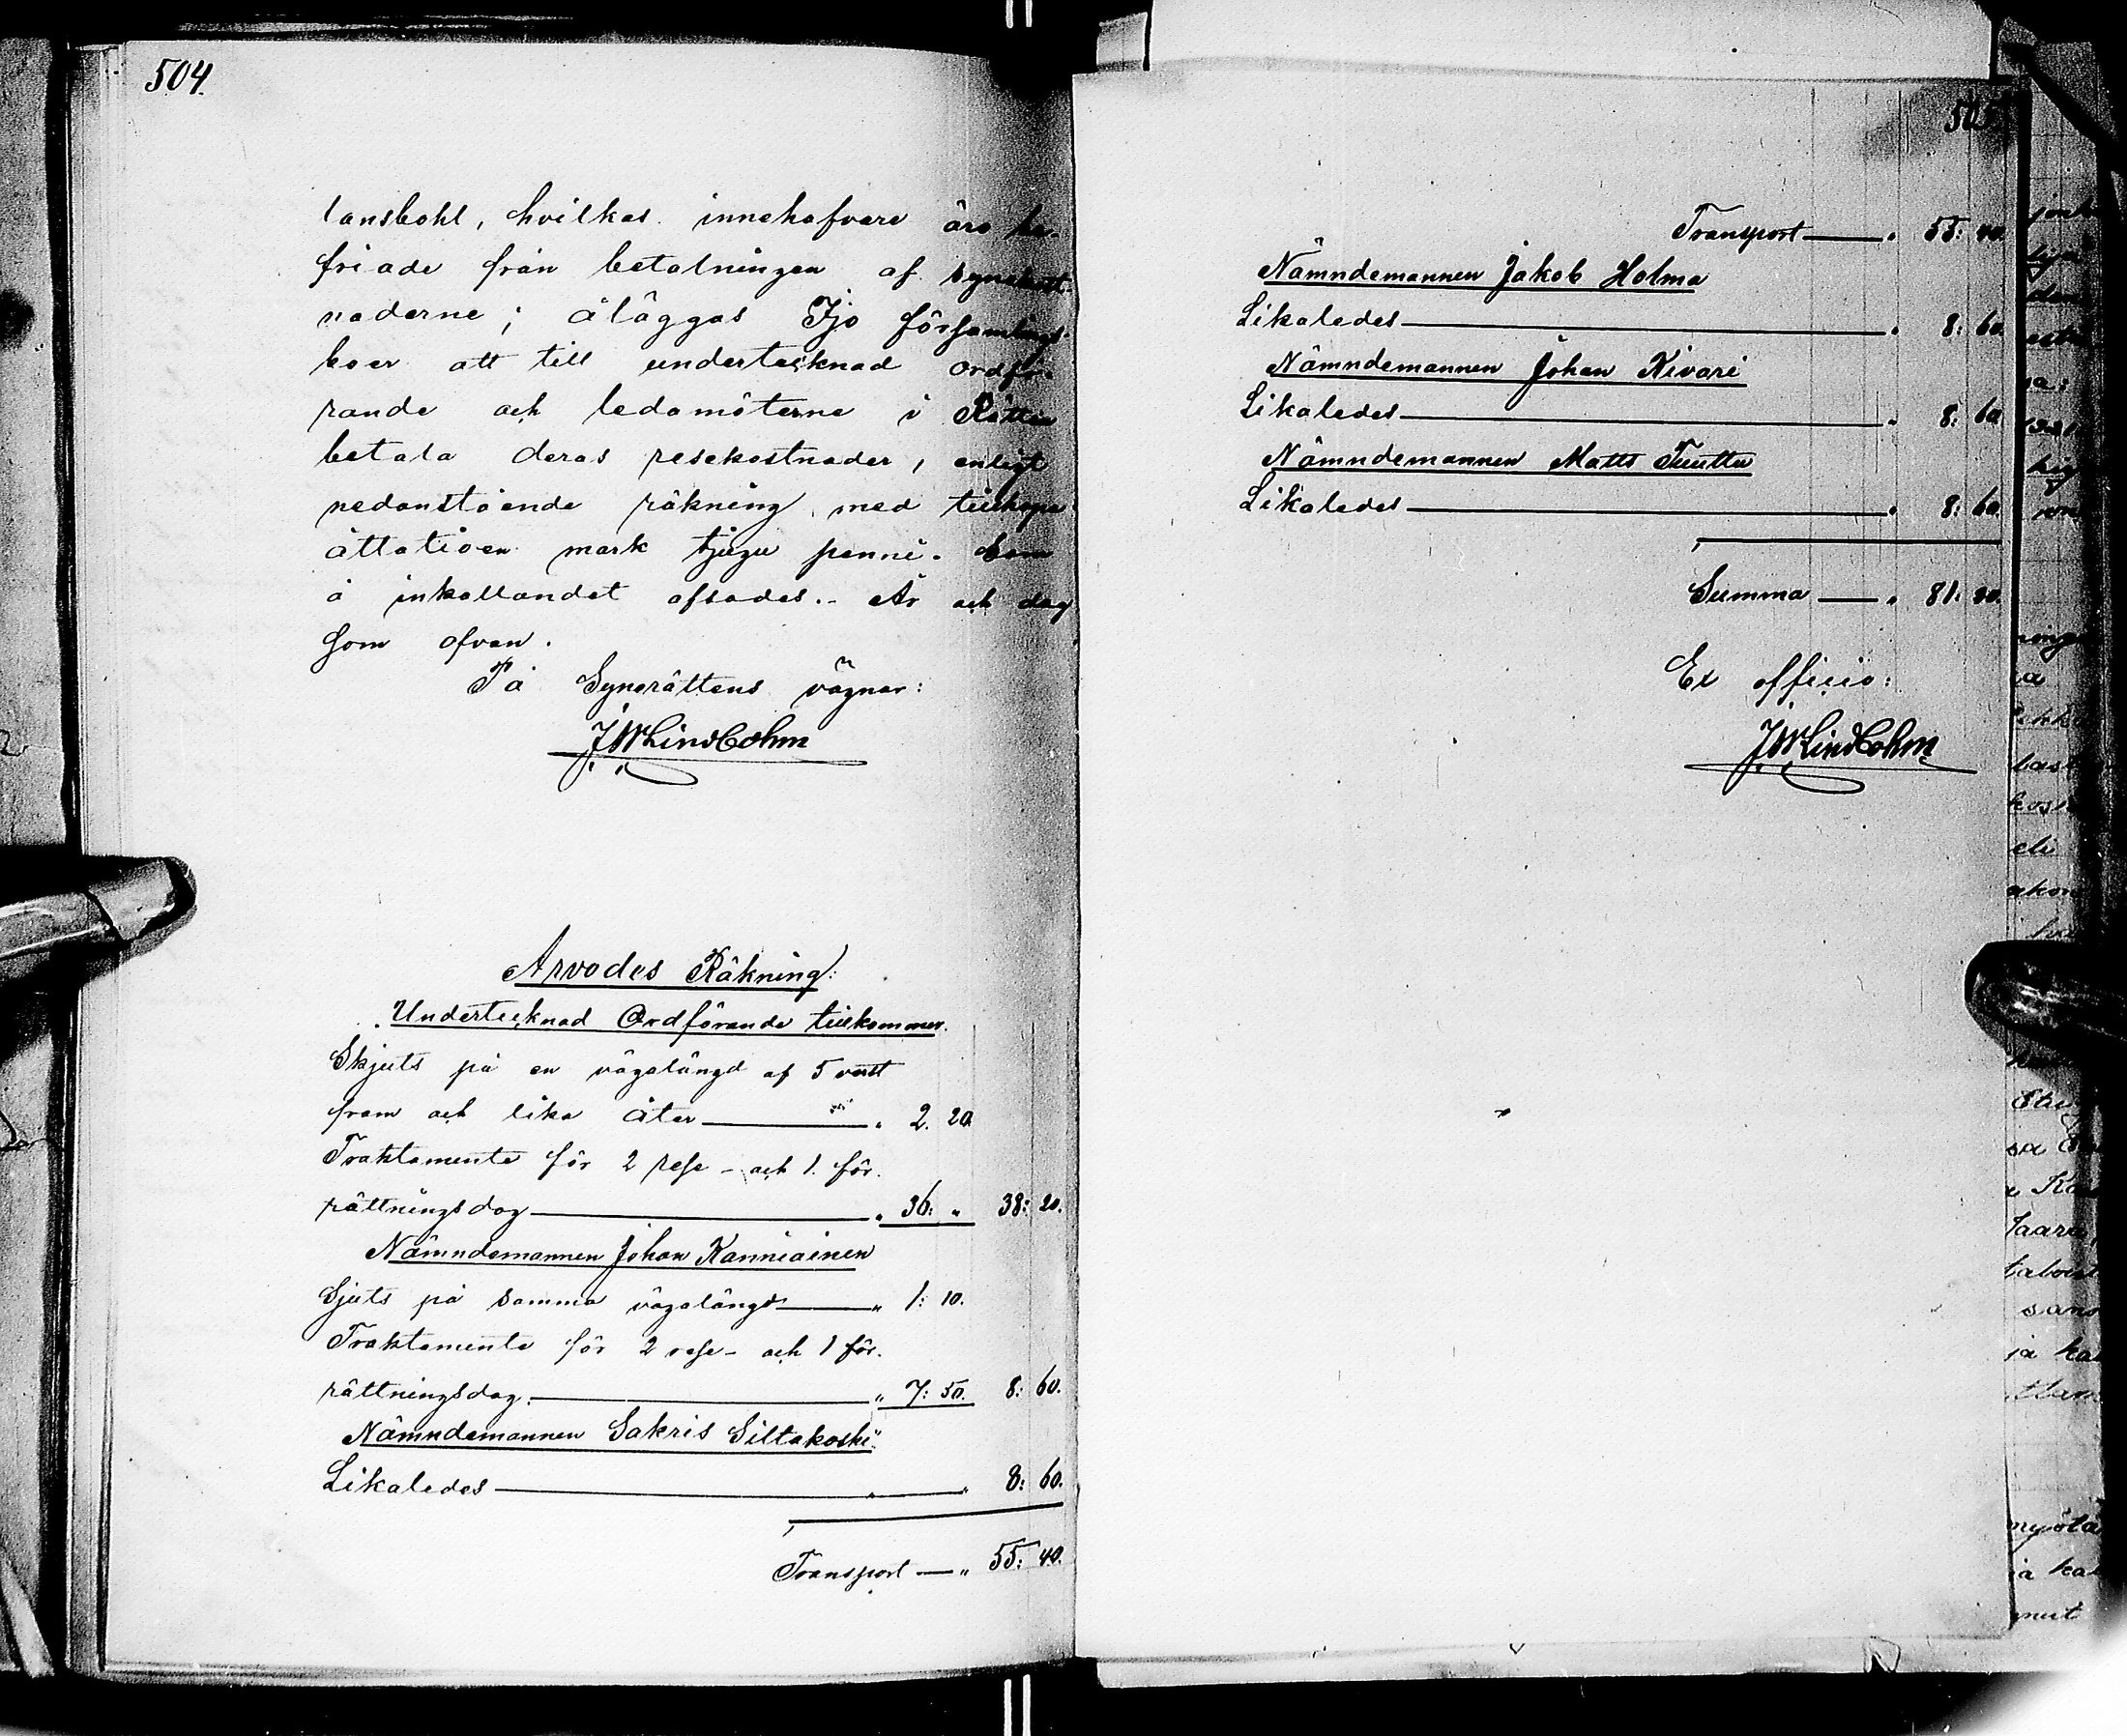 504.
lansbohl, hvilkas innehafvare äro be-
friade från betalningen af synekost-
naderne; åläggas Ijo församlings-
boer att till undertecknad ordfö-
rande och ledamöterne i Rätten
betala deras resekostnader, enligt
nedanstående räkning, med tillhopa
åttatioen mark tjugu penni. Som
å inkallandet afsades. År och dag
som ofvan.
På Synerättens vägnar:
JWLindbohm
Arvodes Räkning:
Undertecknad Ordförande tillkommer.
Skjuts på en vägalängd af 5 verst
fram och lika åter — " 2. 20.
Traktamente för 2 rese- och 1. för-
rättningsdag — " 36: " 38: 20.
Nämndemannen Johan Kanniainen
Sjuts på samma vägalängd — " 1: 10.
Traktamente för 2 rese- och 1 för-
rättningsdag. — " 7: 50. 8: 60.
Nämndemannen Sakris Siltakoski
Likaledes — " " 8: 60.
Transport — " 55: 40.
505
Transport — " 55: 40.
Nämndemannen Jakob Holma
Likaledes — " 8: 60.
Nämndemannen Johan Kivari
Likaledes — " 8: 60
Nämndemannen Matts Tuuttu
Likaledes — " 8: 60.
Summa — " 81: 20.
Ex officio:
JWLindbohm